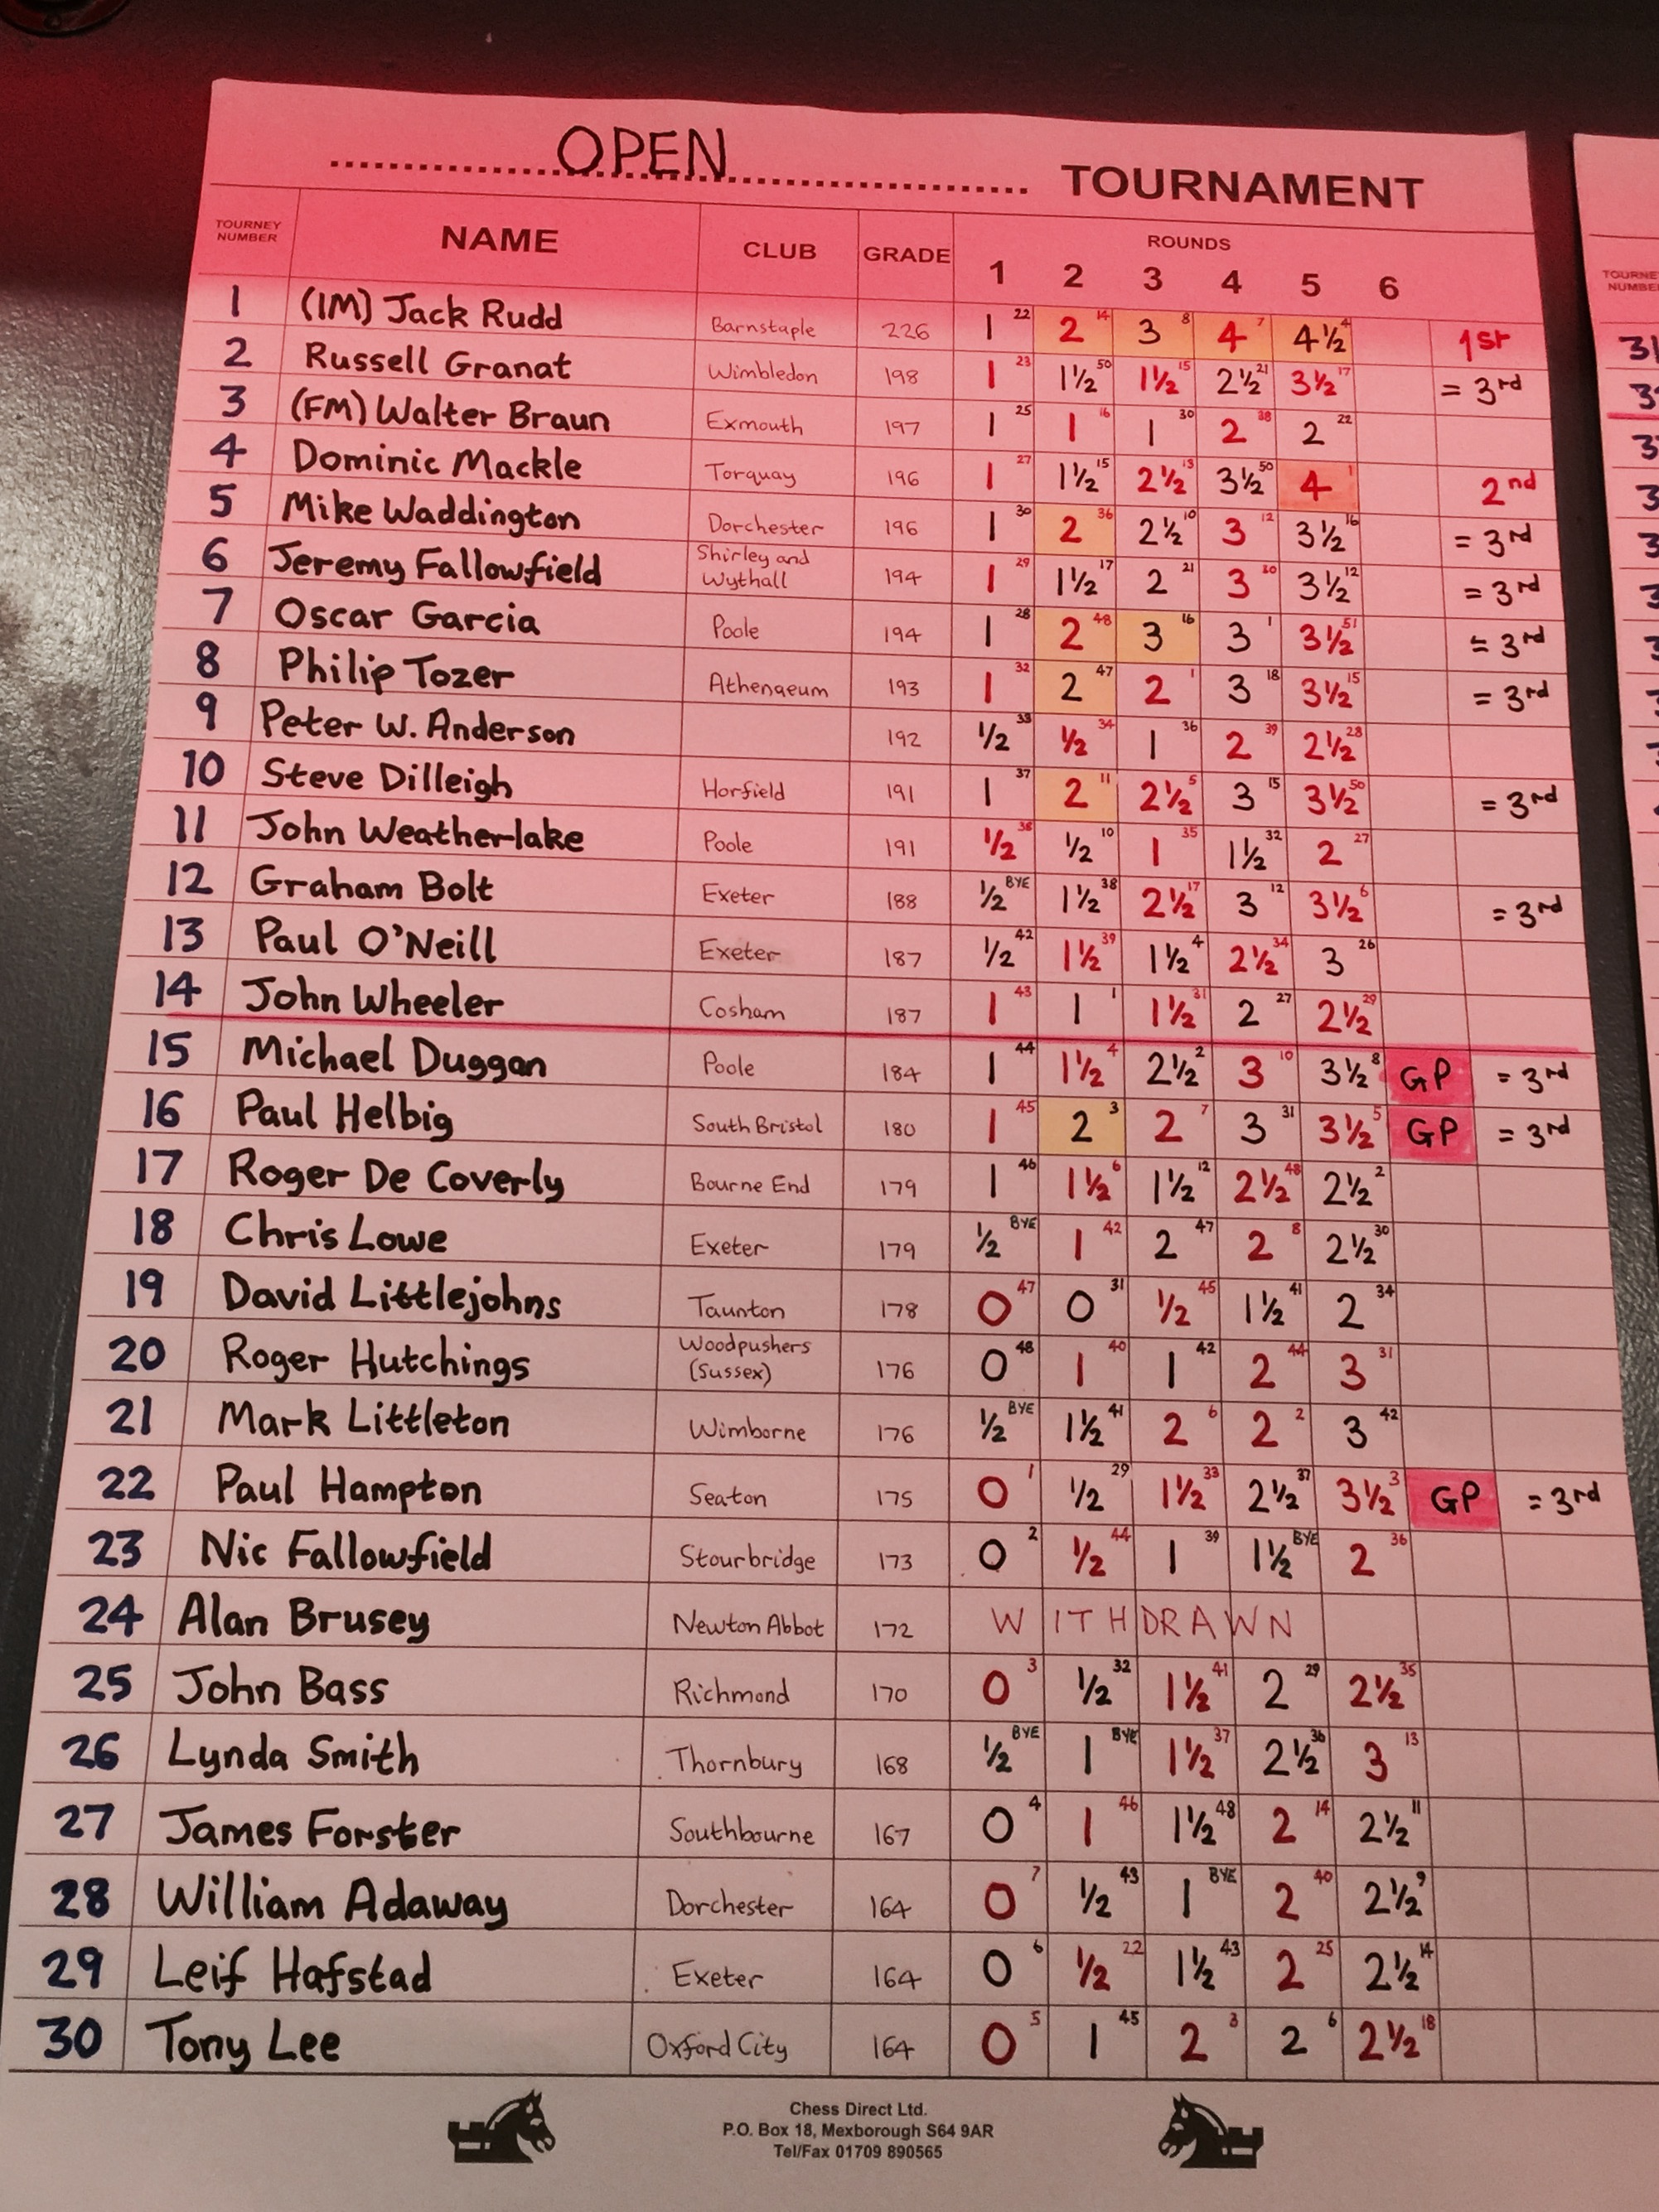 OPEN TOURNAMENT
TOURNEY NUMBER NAME CLUB GRADE ROUNDS 1 2 3 4 5 6
1 (IM) Jack Rudd Barnstaple 226 1 22 2 14 3 8 4 7 4½ 4 1st
2 Russell Granat Wimbledon 198 1 23 1½ 50 1½ 15 2½ 21 3½ 17 = 3rd
3 (FM) Walter Braun Exmouth 197 1 25 1 16 1 30 2 38 2 22
4 Dominic Mackle Torquay 196 1 27 1½ 15 2½ 13 3½ 50 4 1 2nd
5 Mike Waddington Dorchester 196 1 30 2 36 2½ 10 3 12 3½ 16 = 3rd
6 Jeremy Fallowfield Shirley and Wythall 194 1 29 1½ 17 2 21 3 30 3½ 12 = 3rd
7 Oscar Garcia Poole 194 1 28 2 48 3 16 3 1 3½ 51 = 3rd
8 Philip Tozer Athenaeum 193 1 32 2 47 2 1 3 18 3½ 15 = 3rd
9 Peter W. Anderson 192 ½ 33 ½ 34 1 36 2 39 2½ 28
10 Steve Dilleigh Horfield 191 1 37 2 11 2½ 5 3 15 3½ 50 = 3rd
11 John Weatherlake Poole 191 ½ 38 ½ 10 1 35 1½ 32 2 27
12 Graham Bolt Exeter 188 ½ BYE 1½ 38 2½ 17 3 12 3½ 6 = 3rd
13 Paul O'Neill Exeter 187 ½ 42 1½ 39 1½ 4 2½ 34 3 26
14 John Wheeler Cosham 187 1 43 1 1 1½ 31 2 27 2½ 29
15 Michael Duggan Poole 184 1 44 1½ 4 2½ 2 3 10 3½ 8 GP = 3rd
16 Paul Helbig South Bristol 180 1 45 2 3 2 7 3 31 3½ 5 GP = 3rd
17 Roger De Coverly Bourne End 179 1 46 1½ 6 1½ 12 2½ 48 2½ 2
18 Chris Lowe Exeter 179 ½ BYE 1 42 2 47 2 8 2½ 30
19 David Littlejohns Taunton 178 0 47 0 31 ½ 45 1½ 41 2 34
20 Roger Hutchings Woodpushers (Sussex) 176 0 48 1 40 1 42 2 44 3 31
21 Mark Littleton Wimborne 176 ½ BYE 1½ 41 2 6 2 2 3 42
22 Paul Hampton Seaton 175 0 1 ½ 29 1½ 33 2½ 37 3½ 3 GP = 3rd
23 Nic Fallowfield Stourbridge 173 0 2 ½ 44 1 39 1½ BYE 2 36
24 Alan Brusey Newton Abbot 172 WITHDRAWN
25 John Bass Richmond 170 0 3 ½ 32 1½ 41 2 29 2½ 35
26 Lynda Smith Thornbury 168 ½ BYE 1 BYE 1½ 37 2½ 36 3 13
27 James Forster Southbourne 167 0 4 1 46 1½ 48 2 14 2½ 11
28 William Adaway Dorchester 164 0 7 ½ 43 1 BYE 2 40 2½ 9
29 Leif Hafstad Exeter 164 0 6 ½ 22 1½ 43 2 25 2½ 14
30 Tony Lee Oxford City 164 0 5 1 45 2 3 2 6 2½ 18
Chess Direct Ltd.
P.O. Box 18, Mexborough S64 9AR
Tel/Fax 01709 890565